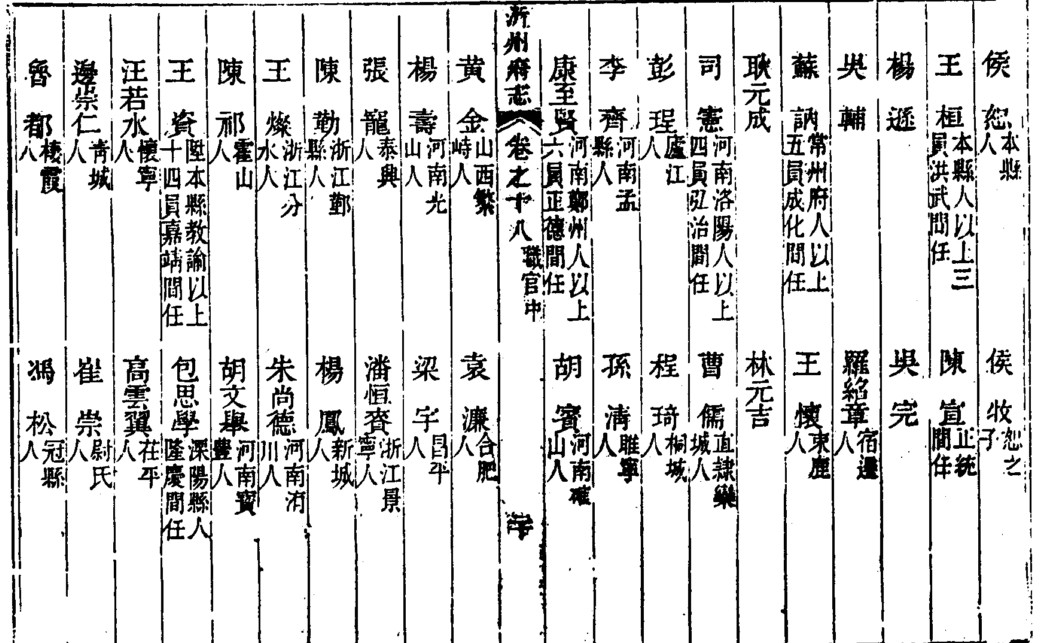 侯恕本縣人 侯牧恕之子
王桓本縣人以上三員洪武間任 陳宣正統間任
楊遜 吳完
吳輔 羅紹章宿遷人
蘇訥常州府人以上五員成化間任 王懷束鹿人
耿元成 林元吉
司憲河南洛陽人以上四員弘治間任 曹儒直隸欒城人
彭珵廬江人 程琦桐城人
李齊河南孟縣人 孫清睢寧人
康至賢河南鄭州人以上六員正德間任 胡賓河南確山人
沂州府志 卷之十八 職官中
黃金山西繁峙人 袁濂合肥人
楊壽河南光山人 梁宇昌平人
張龍泰興人 潘恒賚浙江景寧人
陳勤浙江鄞縣人 楊鳳新城人
王燦浙江分水人 朱尚德河南淯川人
陳祁霍山 胡文舉河南寶豐人
王資陞本縣教諭以上十四員嘉靖間任 包思學溧陽縣人隆慶間任
汪若水懷寧人 高雲翼茌平人
邊崇仁青城人 崔崇尉氏人
魯都棲霞人 馮松冠縣人